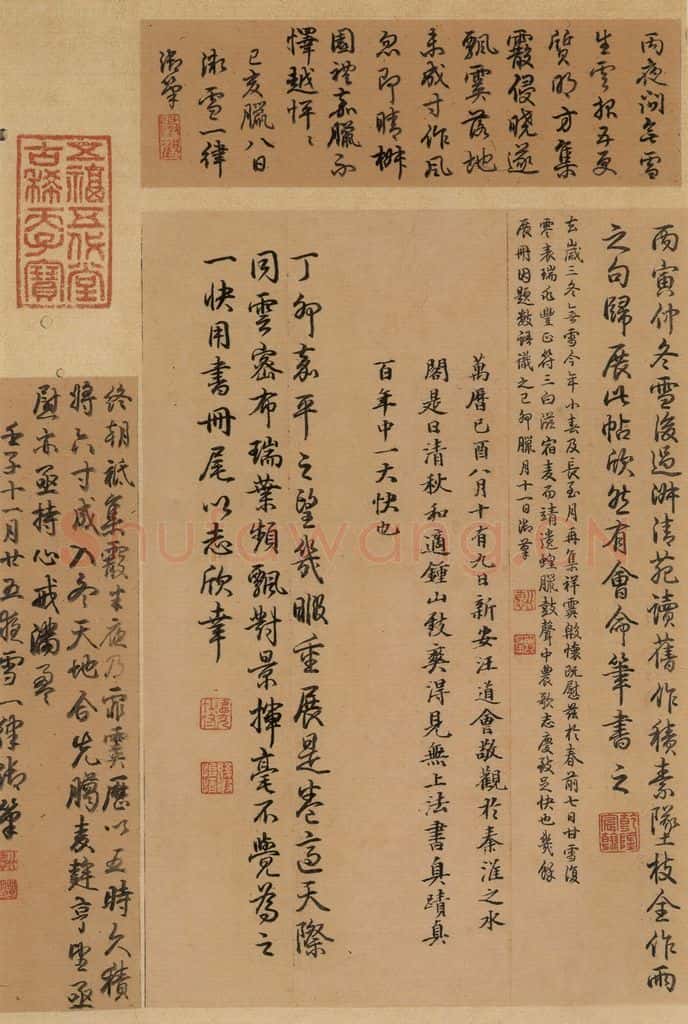 丙夜问无雪
生雲招五更
質明方集
霰侵曉遂
飄霙落地
未成寸作風
忽即晴枻
園禮嘉臘不
懌越怦〻
己亥臘八日
微雪一律
御筆
丙寅仲冬雪後過淑清苑讀舊作積素墜枝全作雨
之句歸展此帖欣然有會命筆書之
乾隆
宸翰
去歲三冬無雪今年小春及長至月再集祥霙殷懷既慰茲於春前七日甘雪復
零表瑞兆豐正符三白滋宿麥而靖遺蝗臘鼓聲中農歌志慶致足快也幾餘
展冊因題數語識之己卯臘月十一日御筆
萬曆己酉八月十有九日新安汪道會敬觀於秦淮之水
閣是日清秋和適鍾山致爽得見無上法書真蹟真
百年中一大快也
丁卯嘉平之望幾暇重展是卷適天際
同雲密布瑞葉頻飄對景揮毫不覺為之
一快用書冊尾以志欣幸
五福五代堂
古稀天子寶
終朝祇集霰半夜乃霏霙歷以五時久積
將六寸成入冬天地合先臈麦麰亨望亟
慰亦亟持心戒滿盈
壬子十一月廿五夜雪一律御筆
Shufawang.CN